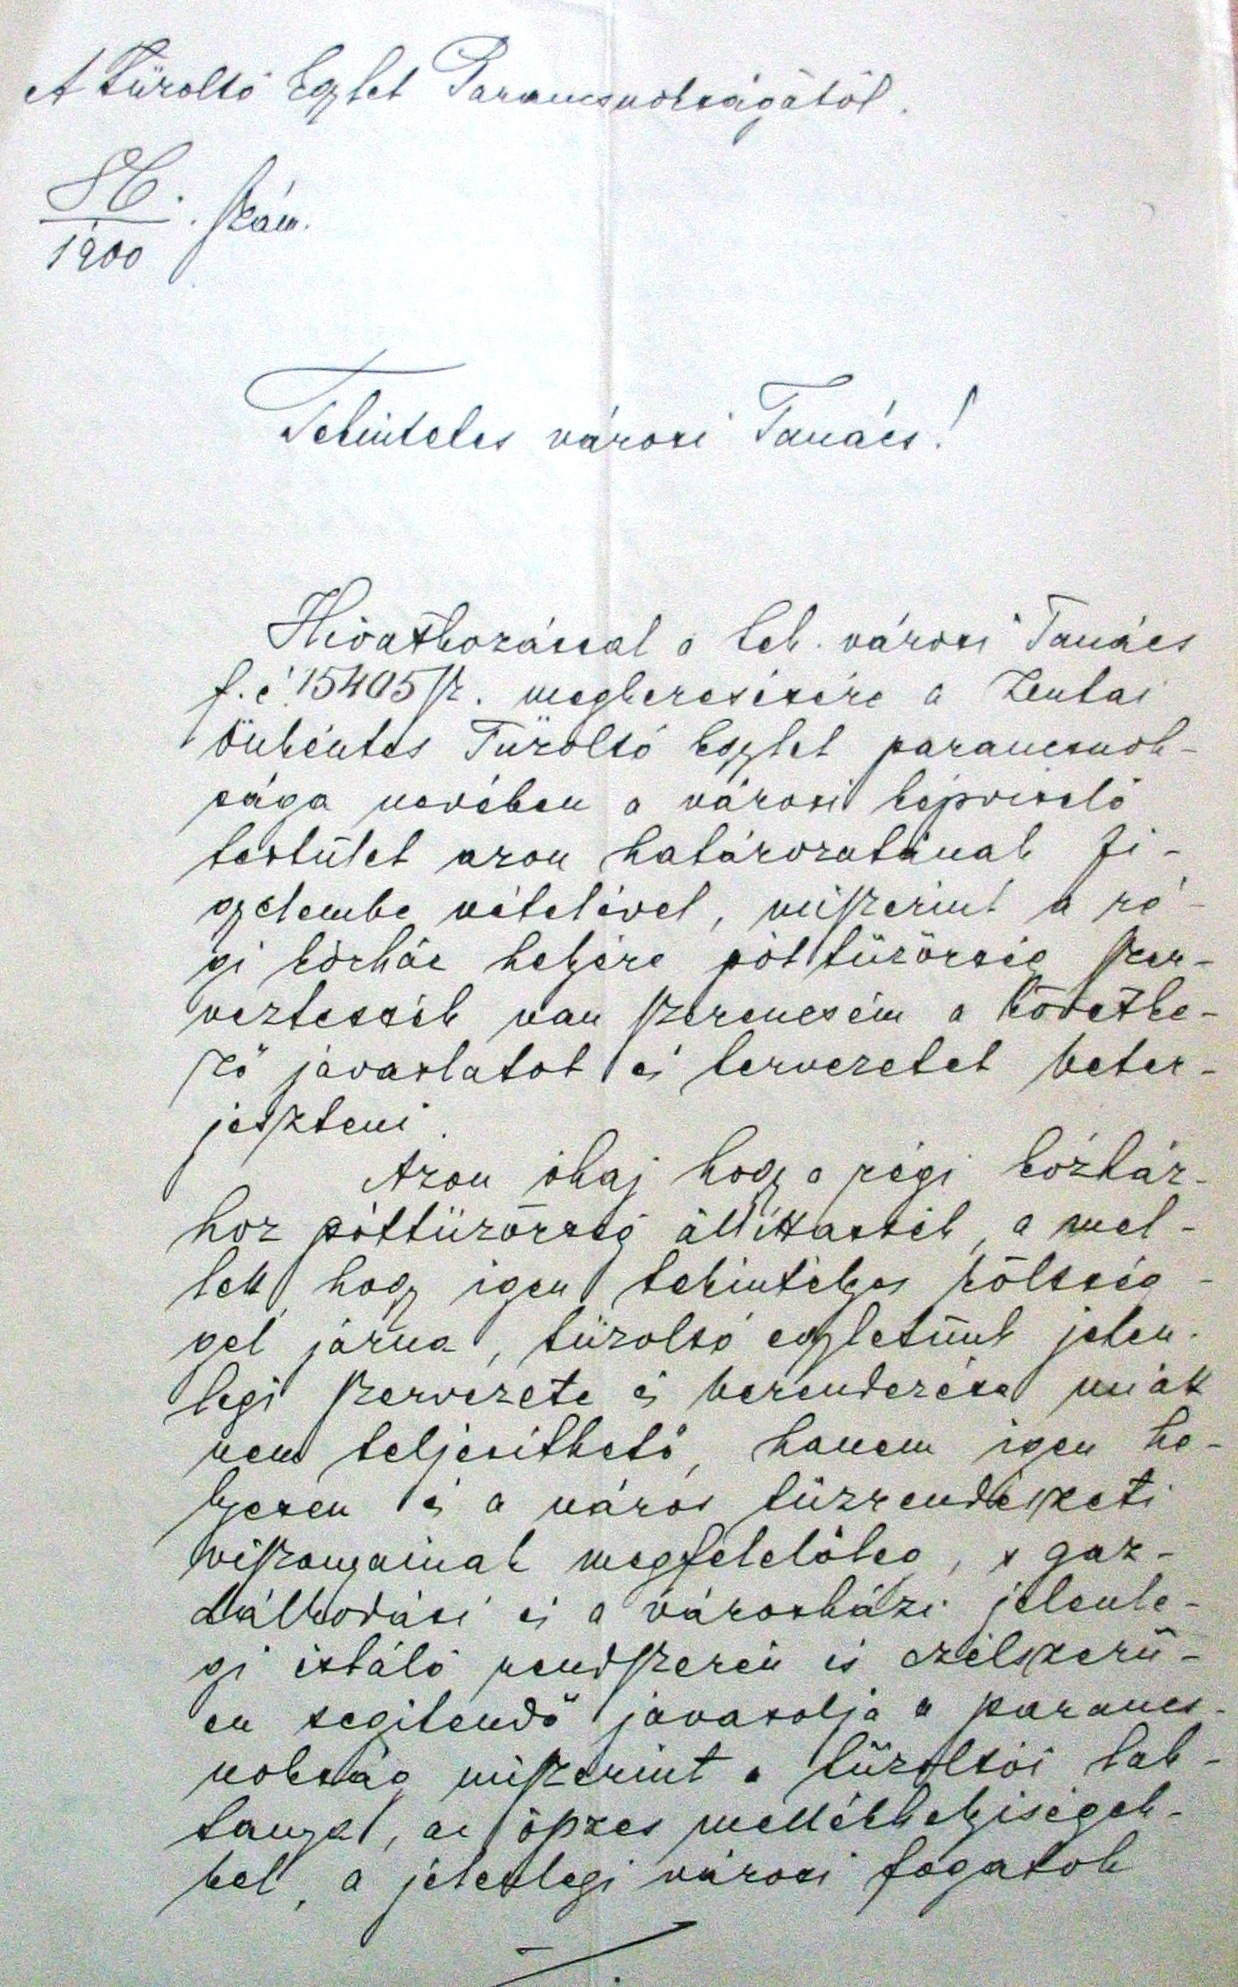 A Tüzoltó Egylet Parancsnokságától.
86./1900. szám.
Tekintetes városi Tanács!
Hivatkozással a tek. városi Tanács
f. é. 15405 sz. megkeresésére a Zentai
Önkéntes Tüzoltó Egylet parancsnok-
sága nevében a városi képviselő
testület azon határozatának fi-
gyelembe vételével, miszerint a ré-
gi kórház helyére póttüzörség szer-
veztessék van szerencsém a követke-
ző javaslatot és tervezetet beter-
jeszteni.
Azon óhaj hogy a régi kórház-
hoz póttüzörség állíttassék, a mel-
lett, hogy igen tekintélyes költség-
gel járna, tüzoltó egyletünk jelen-
legi szervezete és berendezése miatt
nem teljesithető, hanem igen he-
lyesen és a város tüzrendészeti
viszonyainak megfelelőleg, s gaz-
dálkodási és a városházi jelenle-
gi istáló rendszerén is czélszerü-
en segitendő javasolja a parancs-
nokság miszerint a tüzoltói lak-
tanya, az öszes mellékhelyiségek-
kel, a jelenlegi városi fogatok